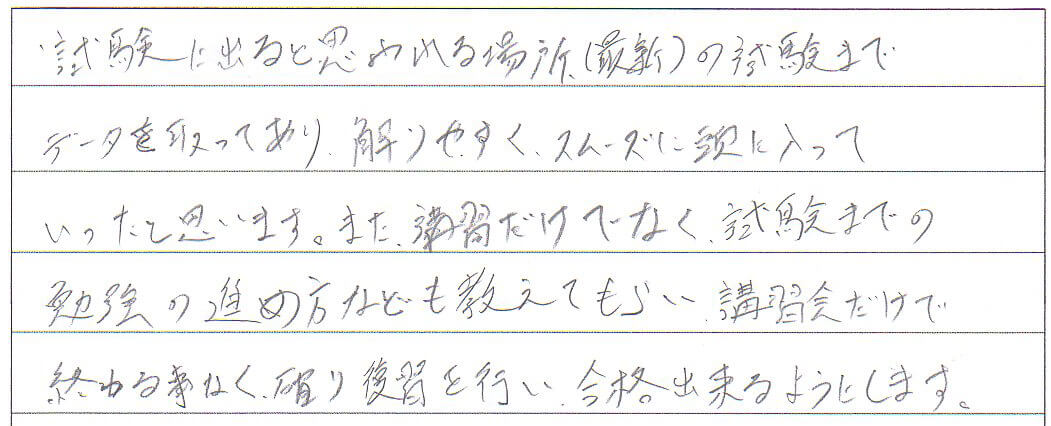 試験に出ると思われる場所、(最新)の試験まで
データを取ってあり、解りやすく、スムーズに頭に入って
いったと思います。また、講習だけでなく、試験までの
勉強の進め方なども教えてもらい、講習会だけで
終わる事なく、確り復習を行い、合格出来るようにします。